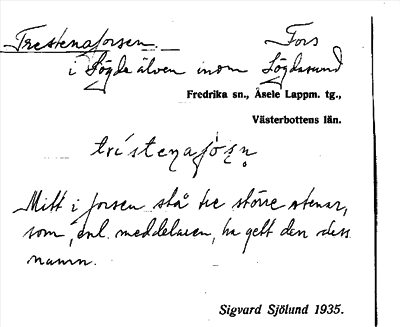 Trestenaforsen. Fors
i Lögde älven inom Lögdasund
Fredrika sn., Åsele Lappm. tg.,
Västerbottens län.
trístenafòṣṇ
Mitt i forsen stå tre större stenar,
som, enl. meddelaren, ha gett den dess
namn.
Sigvard Sjölund 1935.